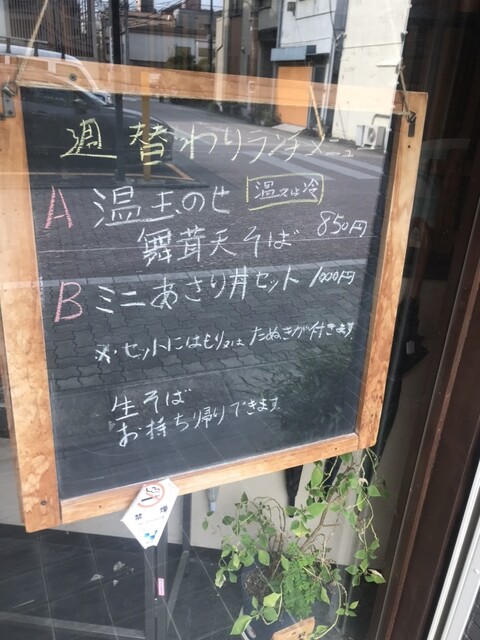 週替わりランチメニュー
A 温玉のせ 温又は冷
舞茸天そば 850円
B ミニあさり丼セット 1000円
※・セットにはもり又はたぬきが付きます。
生そば
お持ち帰りできます。
禁煙